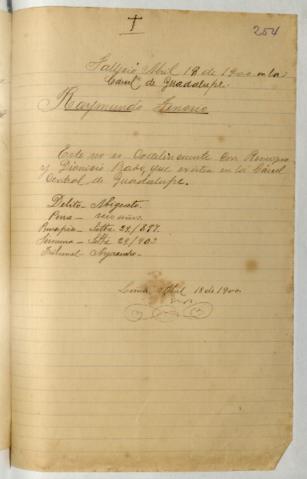 254
Falleció Abril 18 de 1900 en la
Carcel de Guadalupe.
Raymundo Tenorio
Este no es Codelincuente con Remigio
y Dionisio que existen en la Cárcel
Central de Guadalupe.
Delito - Abigeato.
Pena - seis años.
Principio - Setbe 28/897.
Termina - Setbe 28/903
Tribunal Ayacucho.
Lima Abril 18 de 1900